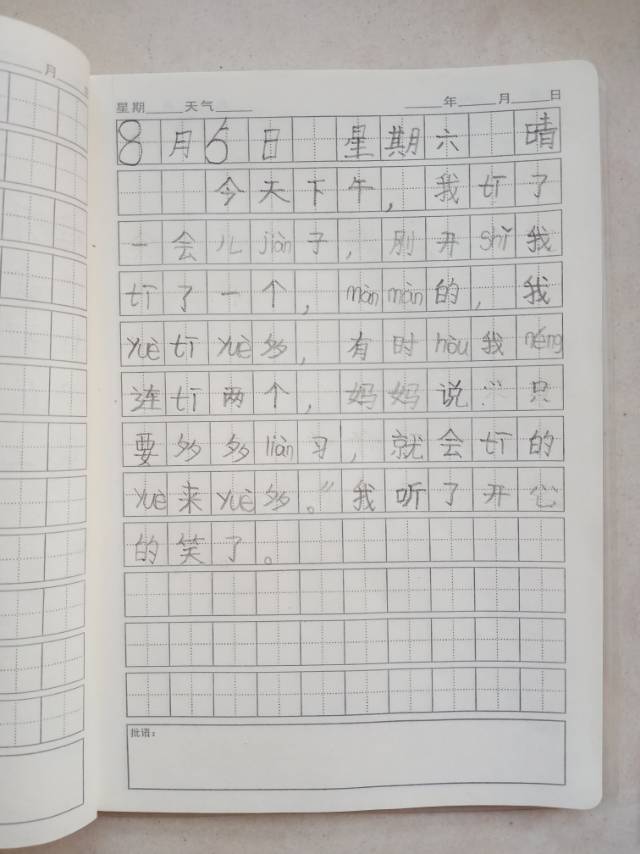 月
星期 天气 年 月 日
8月6日 星期六 晴
今天下午，我tī了
一会儿jiàn子，刚开shǐ我
tī了一个，màn màn的，我
yuè tī yuè多，有时hòu我néng
连tī两个，妈妈说：“只
要多多liàn习，就会tī的
yuè来yuè多。”我听了开心
的笑了。
批语：